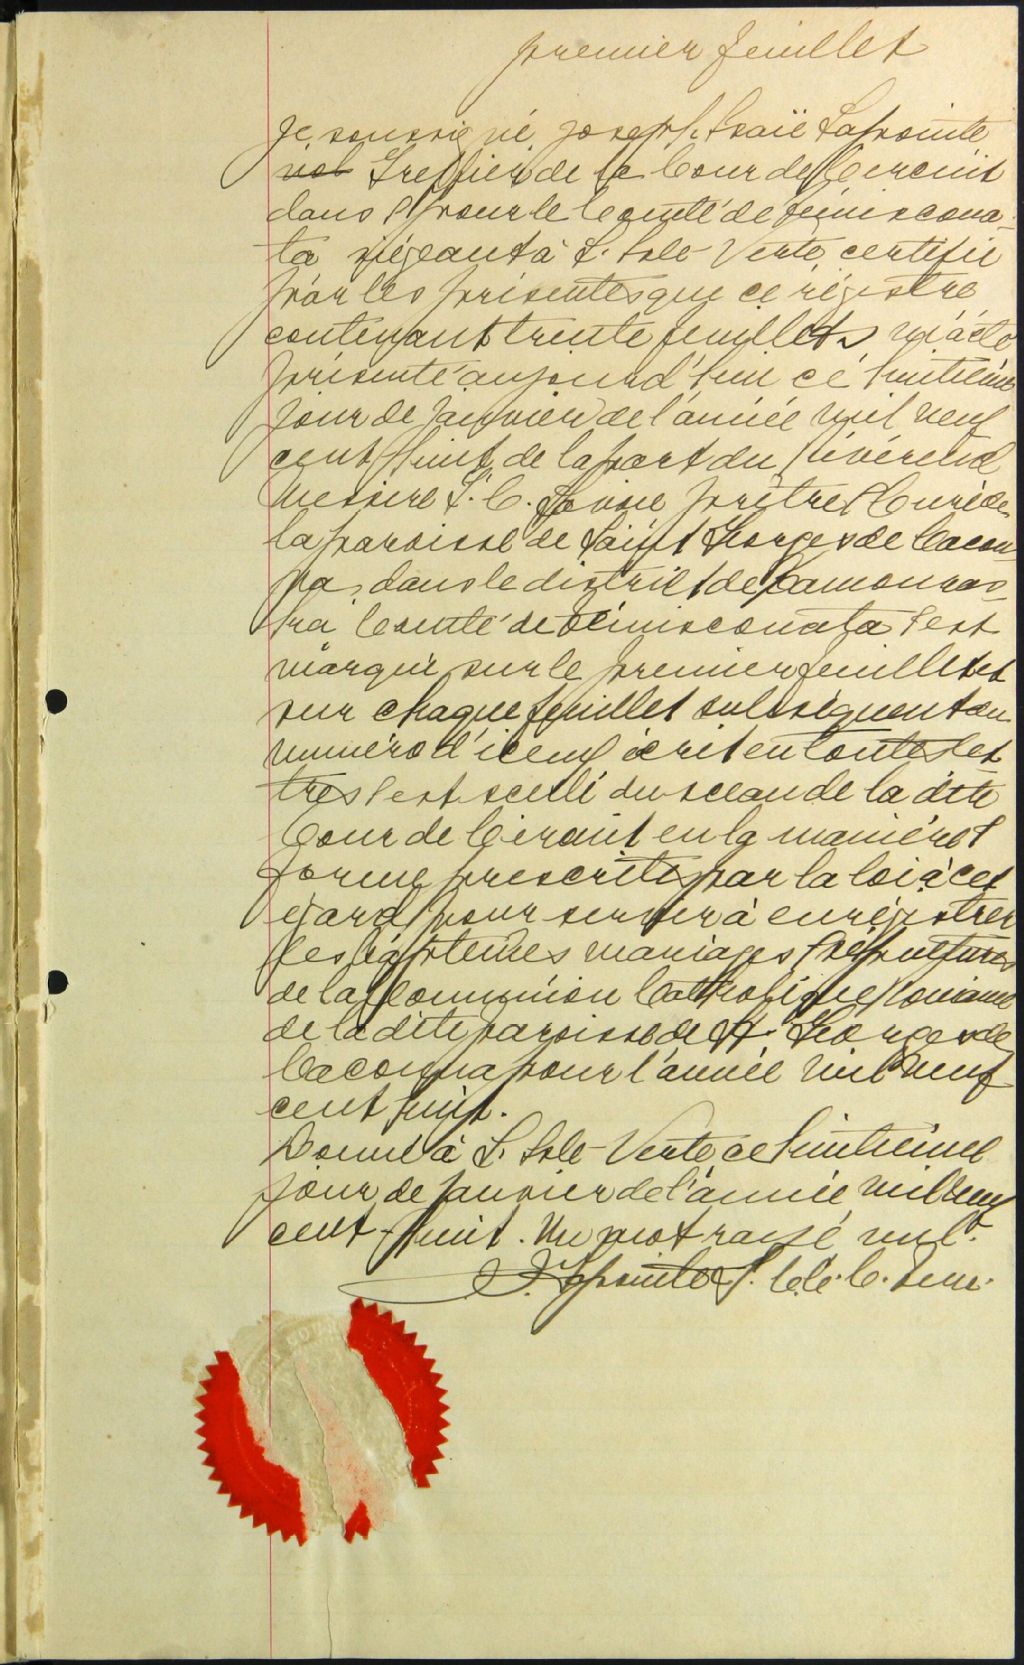 premier feuillet
Je soussigné, Joseph Isaïe Lapointe
Greffier de la Cour de Circuit
dans & pour le Comté de Témiscoua-
ta siégeant à L'Isle-Verte, certifie
par les présentes que ce régistre
contenant trente feuillets m'a été
présenté aujourd'hui ce huitième
jour de Janvier de l'année mil neuf
cent huit, de la part du Révérend
Messire prêtre & Curé de
la paroisse de Saint Georges de Cacou-
na, dans le district de Kamouras-
ka Comté de Témiscouata & est
marqué sur le premier feuillet et
sur chaque feuillet subséquent au
numéro d'iceux écrit en toutes let
tres & est scellé du sceau de la dite
Cour de Circuit en la manière &
forme prescrite par la loi à cet
égard pour servir à enrégistrer
les baptêmes mariages & sépultures
de la Communion Catholique Romaine
de la dite paroisse de St. Georges de
Cacouna pour l'année mil neuf
cent huit.
Donné à L'Isle-Verte ce huitième
jour de Janvier de l'année mil neuf
cent-huit. Un mot rayé nul.
J. I. Lapointe G. C. C. C. Tem.